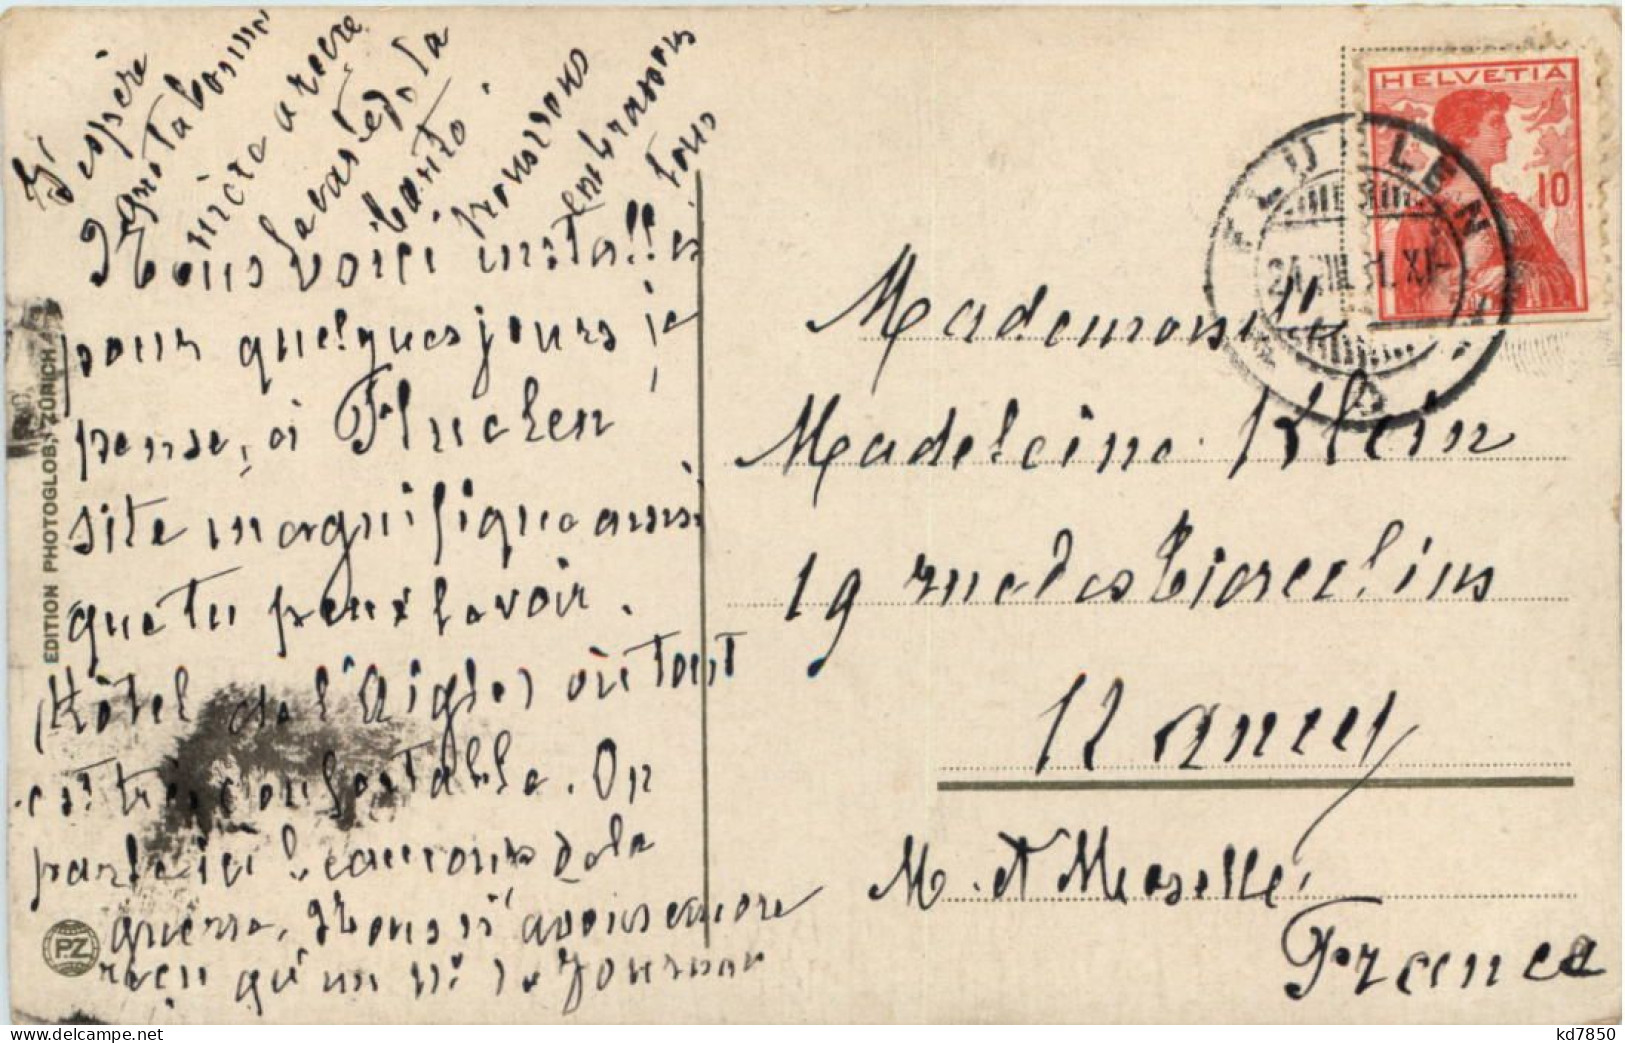 J'espère
que ta bonne
mère a reçu
la carte de la
santé.
nous vous
embrassons
tous
Nous voici installés
pour quelques jours je
pense, à Fluelen
site magnifique ainsi
que tu peux le voir.
Hôtel de l'Aigle, où tout
est très confortable. On
parle ici beaucoup de la
guerre. Nous n'avons encore
rien qu'un n: le journaux
EDITION PHOTOGLOB, ZÜRICH
PZ
HELVETIA
10
FLÜELEN
24.VIII.11.XI
Mademoiselle
Madeleine Klein
19 rue des Tiercelins
Nancy
M. et Moselle
France
kd7850